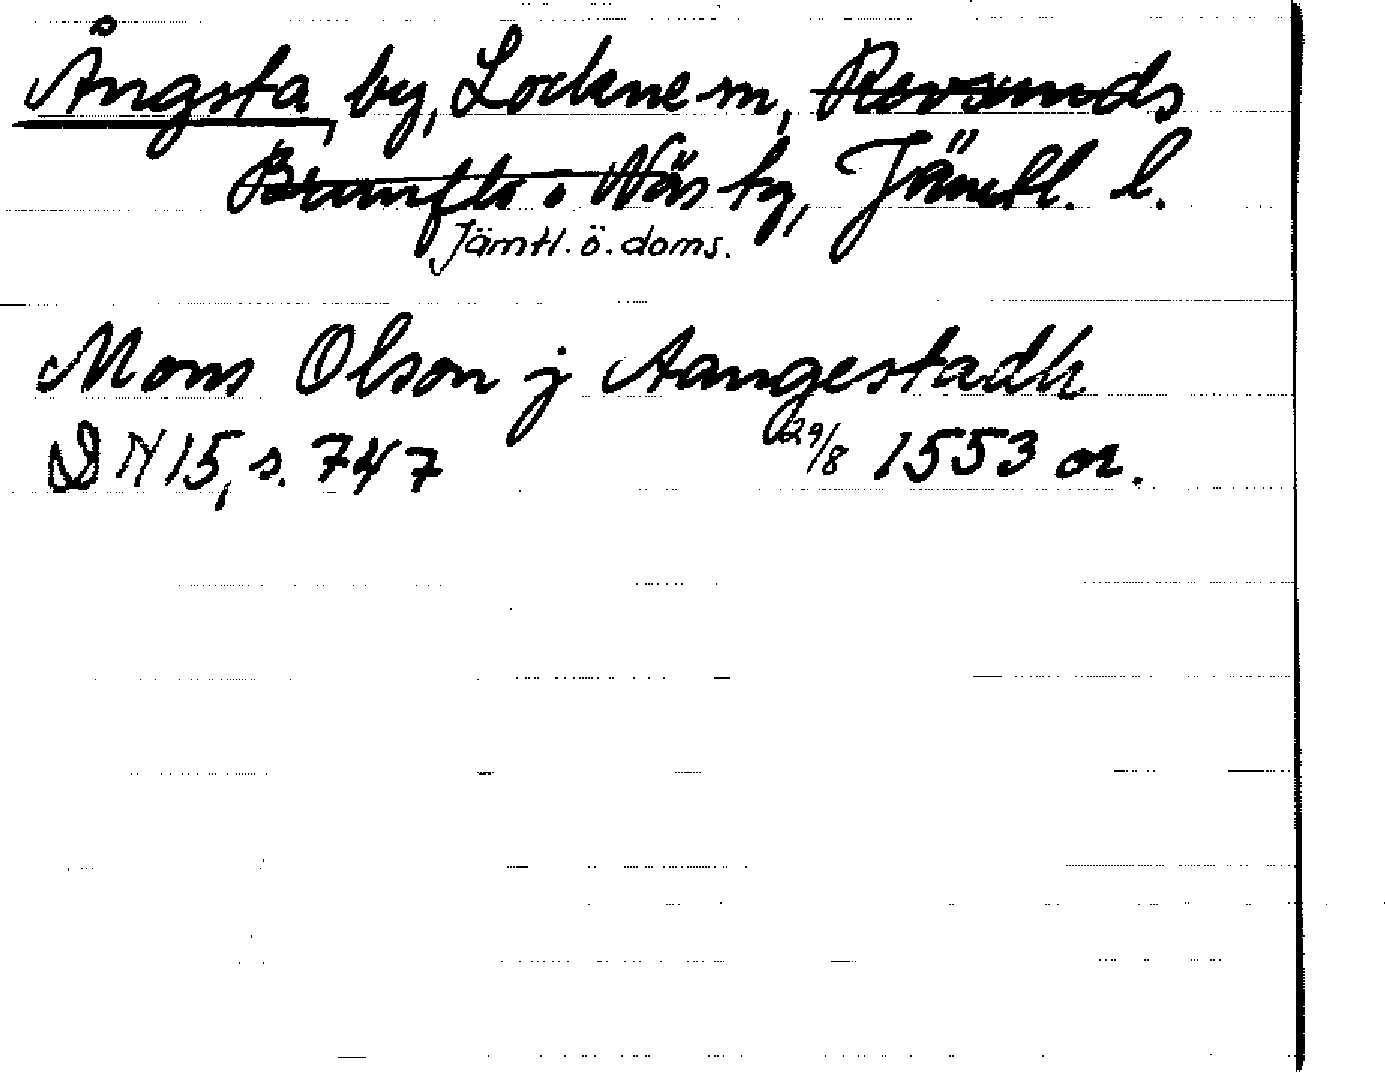 Ångsta, by, Lockne sn, Revsunds
Brunflo o Näs tg, Jämtl. l.
Jämtl. ö. doms.
Mons Olson j Aangestadh
DN 15, s. 747 29/8 1553 or.